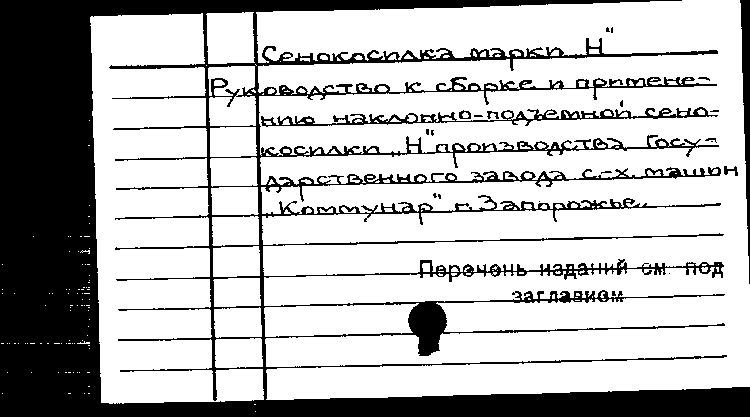 Сенокосилка марки „Н"
Руководство к сборке и примене-
нию наклонно-подъемной сено-
косилки „Н" производства Госу-
дарственного завода с.-х. машин
„Коммунар" г. Запорожье.
Перечень изданий см под
заглавием